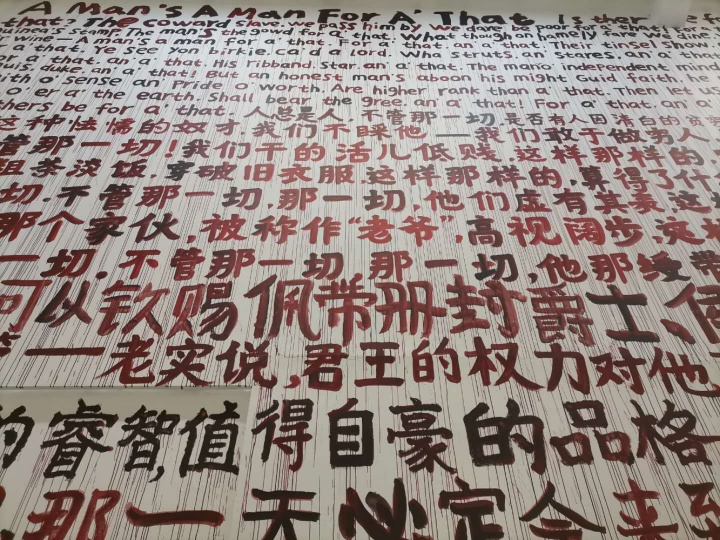 A Man's A Man For A' That Is ther
that? The coward slave we pass him by We dare be poor for a'
guinea's stamp The man's the gowd for a' that. What though on hamely fare we dine
wine— A man's a man for a' that. For a' that. an' a' that. Their tinsel show.
a' that. Ye see yon birkie. ca'd a lord. Wha struts. an' stares. an' a' that
for a' that. an' a' that. His ribband. star. an' a' that. The man o' independent
quis. duke. an' a' that! But an honest man's aboon his might Guid faith. he
pith o' sense an' Pride o' worth. Are higher rank than a' that. Then let us
o'er a' the earth. Shall bear the gree. an' a' that! For a' that. an' a'
thers be for a' that. 人总是人,不管那一切 是否有人因清白的贫
这种怯懦的奴才,我们不睬他——我们敢于做男人
管那一切!我们干的活儿低贱,这样那样的,
粗茶淡饭,穿破旧衣服,这样那样的,算得了什
切,不管那一切,那一切,他们虚有其表这
那个家伙,被称作“老爷”,高视阔步,这
一切,不管那一切,那一切,他那绶带
可以钦赐佩带册封爵士、侯
一老实说,君王的权力对他
的睿智,值得自豪的品格
那一天必定会来到